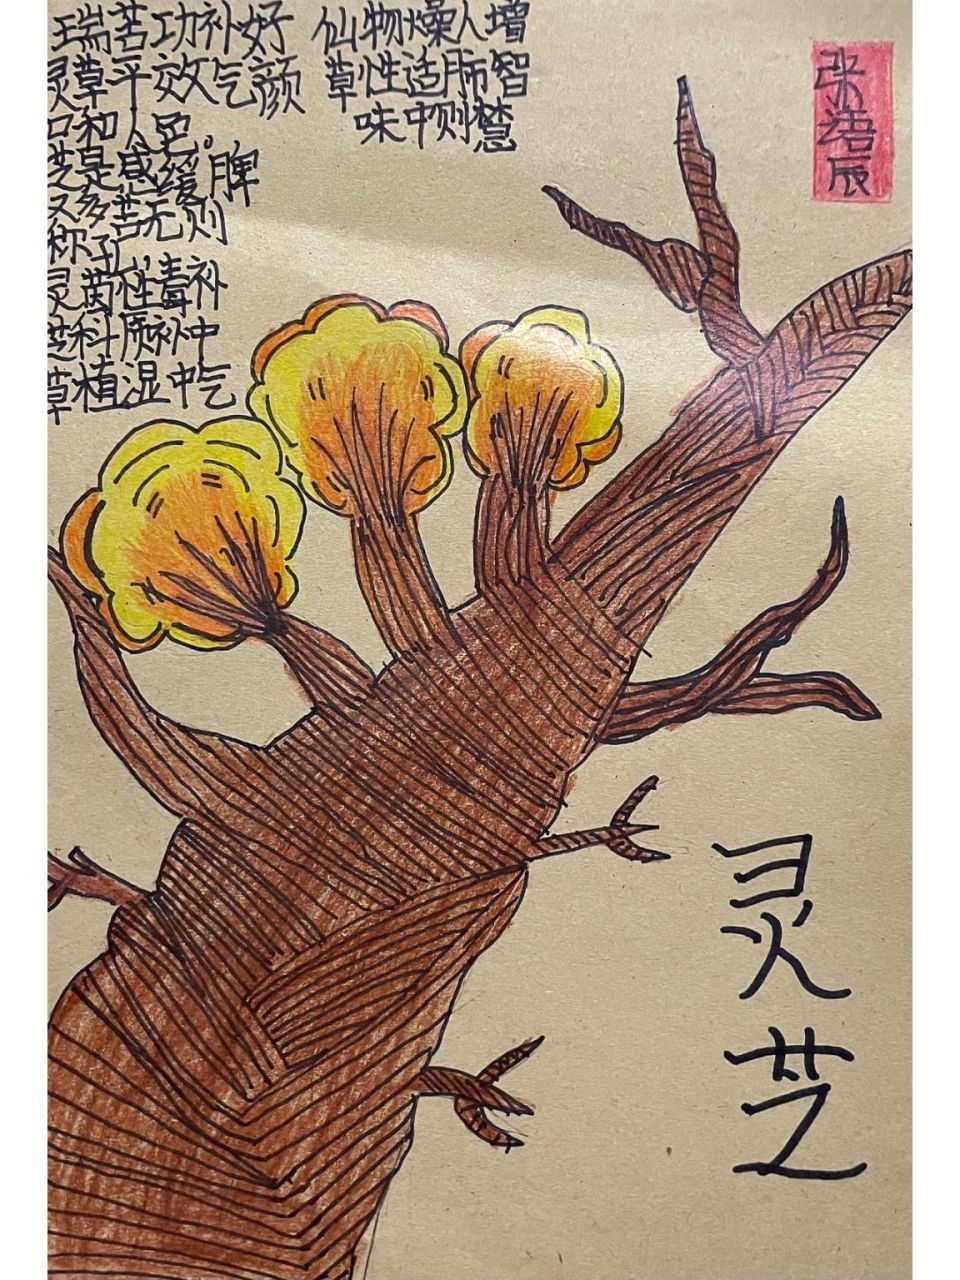 灵口芝又称灵芝草
瑞草和是多孔菌科植
苦平人感苦,性质湿
功效色缓无毒补中
补气。脾则补中气
好颜
仙草
物性味
燥适中
人肺则
增智慧
张语辰
灵芝